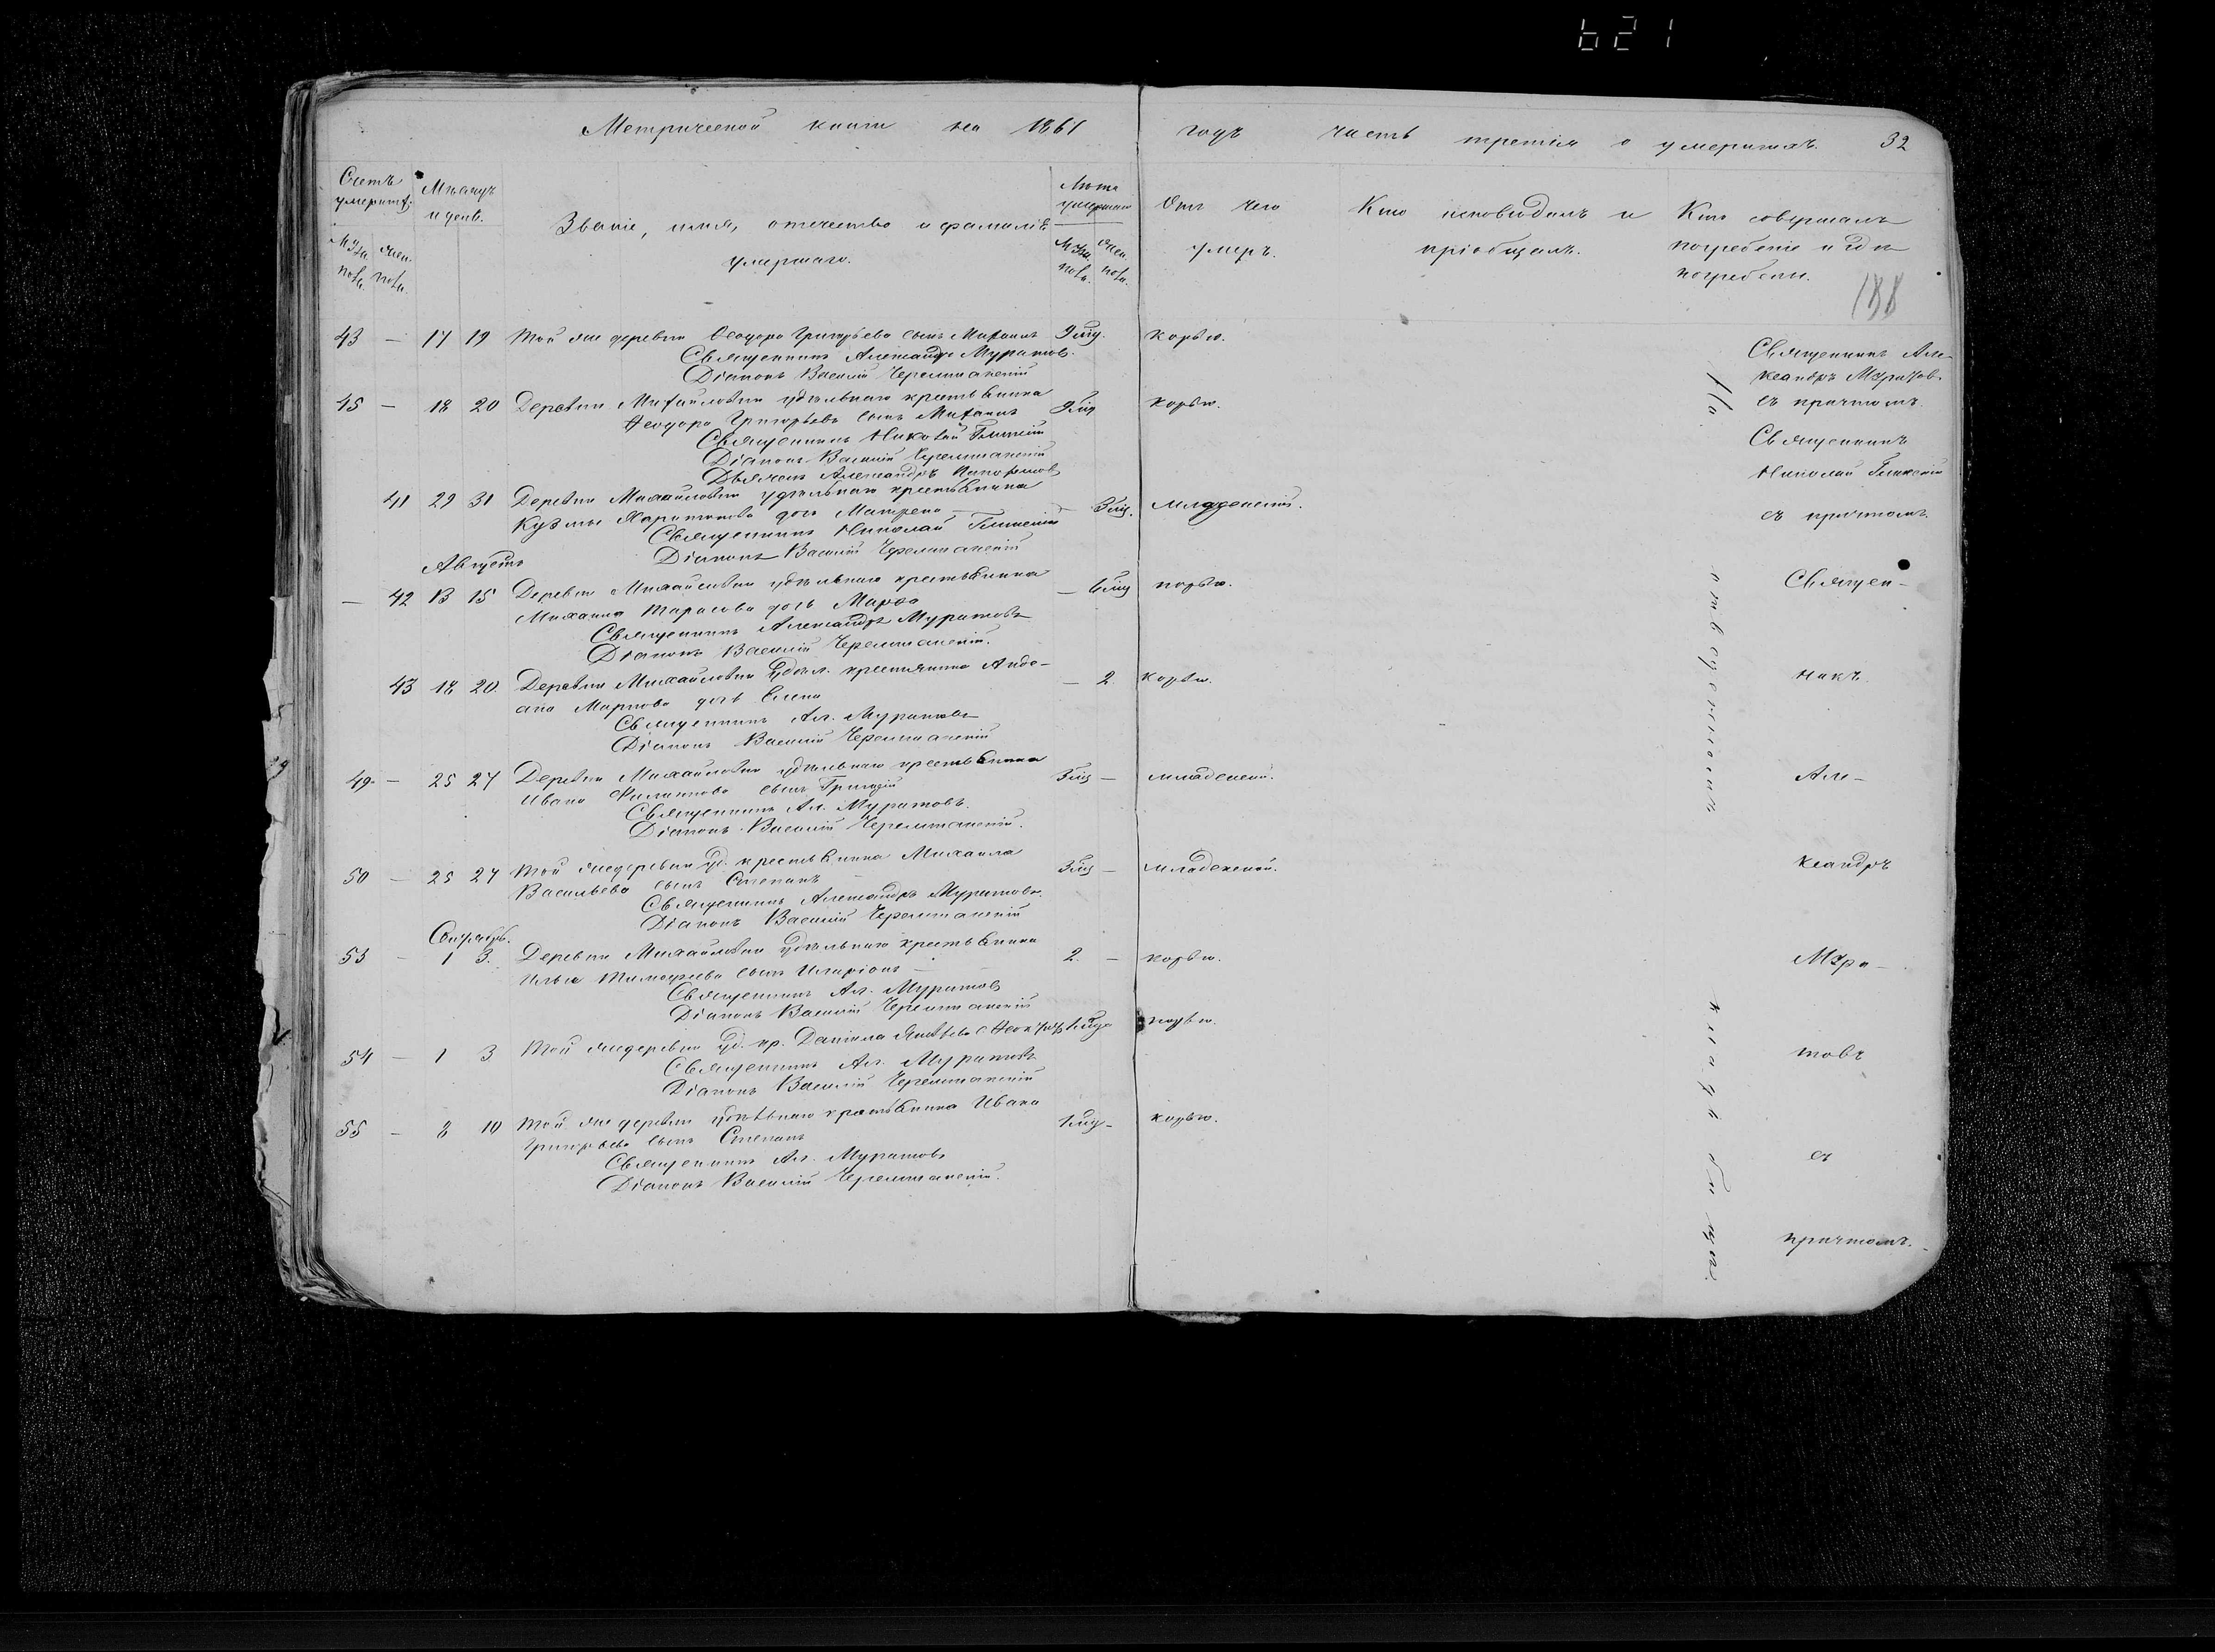 621
Метрической книги на 1861 годъ часть третія о умершихъ. 32
Счетъ умерші:
Мѣсяцъ и день.
Званіе, имя, отчество и фамилія умершаго.
Лѣта умершаго
Отъ чего умеръ.
Кто исповѣдалъ и пріобщалъ.
Кто совершалъ погребеніе и гдѣ погребены.
Муж. пола. Жен. пола.
Муж. пола. Жен. пола.
188
43 — 17 19 Той же деревни Ѳеодора Григорьева сынъ Михаилъ корью.
Священникъ Александръ Муратовъ.
Діаконъ Василій Черемшанскій
Священникъ Александръ Муратовъ съ причтомъ.
45 — 18 20 Деревни Михайловки удѣльнаго крестьянина корью.
Ѳеодора Григорьева сынъ Михаилъ
Священникъ Николай
Діаконъ Василій Черемшанскій
Дьячокъ Александръ
Священникъ
Николай
съ причтомъ.
41 29 31 Деревни Михайловки удѣльнаго крестьянина
Кузьмы Харитонова дочь Матрена — младенской.
Священникъ Николай
Діаконъ Василій Черемшанскій
Августъ
— 42 13 15 Деревни Михайловки удѣльнаго крестьянина — корью.
Михаила Тарасова дочь Марѳа
Священникъ Александръ Муратовъ
Діаконъ Василій Черемшанскій.
Священ-
43 18 20. Деревни Михайловки Удѣл. крестьянина — 2 корью.
Маркова дочь Елена
Священникъ Ал. Муратовъ
Діаконъ Василій Черемшанскій
никъ.
49. — 25 27 Деревни Михайловки удѣльнаго крестьянина — младенской.
Ивана Филиппова сынъ Григорій
Священникъ Ал. Муратовъ.
Діаконъ Василій Черемшанскій.
Але-
50 — 25 27 Той же деревни Уд. крестьянина Михаила — младенской.
Васильева сынъ Степанъ
Священникъ Александръ Муратовъ.
Діаконъ Василій Черемшанскій
ксандръ
Сентябрь.
53 — 1 3. Деревни Михайловки Удѣльнаго крестьянина 2. — корью.
Ильи Тимоѳеева сынъ Иларіонъ —
Священникъ Ал. Муратовъ
Діаконъ Василій Черемшанскій
Мура-
54 — 1 3 Той же деревни Уд. кр. Даніила корью.
Священникъ Ал. Муратовъ
Діаконъ Василій Черемшанскій
товъ
55 — 8 10 Той же деревни удѣльнаго крестьянина Ивана корью.
Григорьева сынъ Степанъ
Священникъ Ал. Муратовъ
Діаконъ Василій Черемшанскій.
съ
причтомъ.
На кладбищѣ